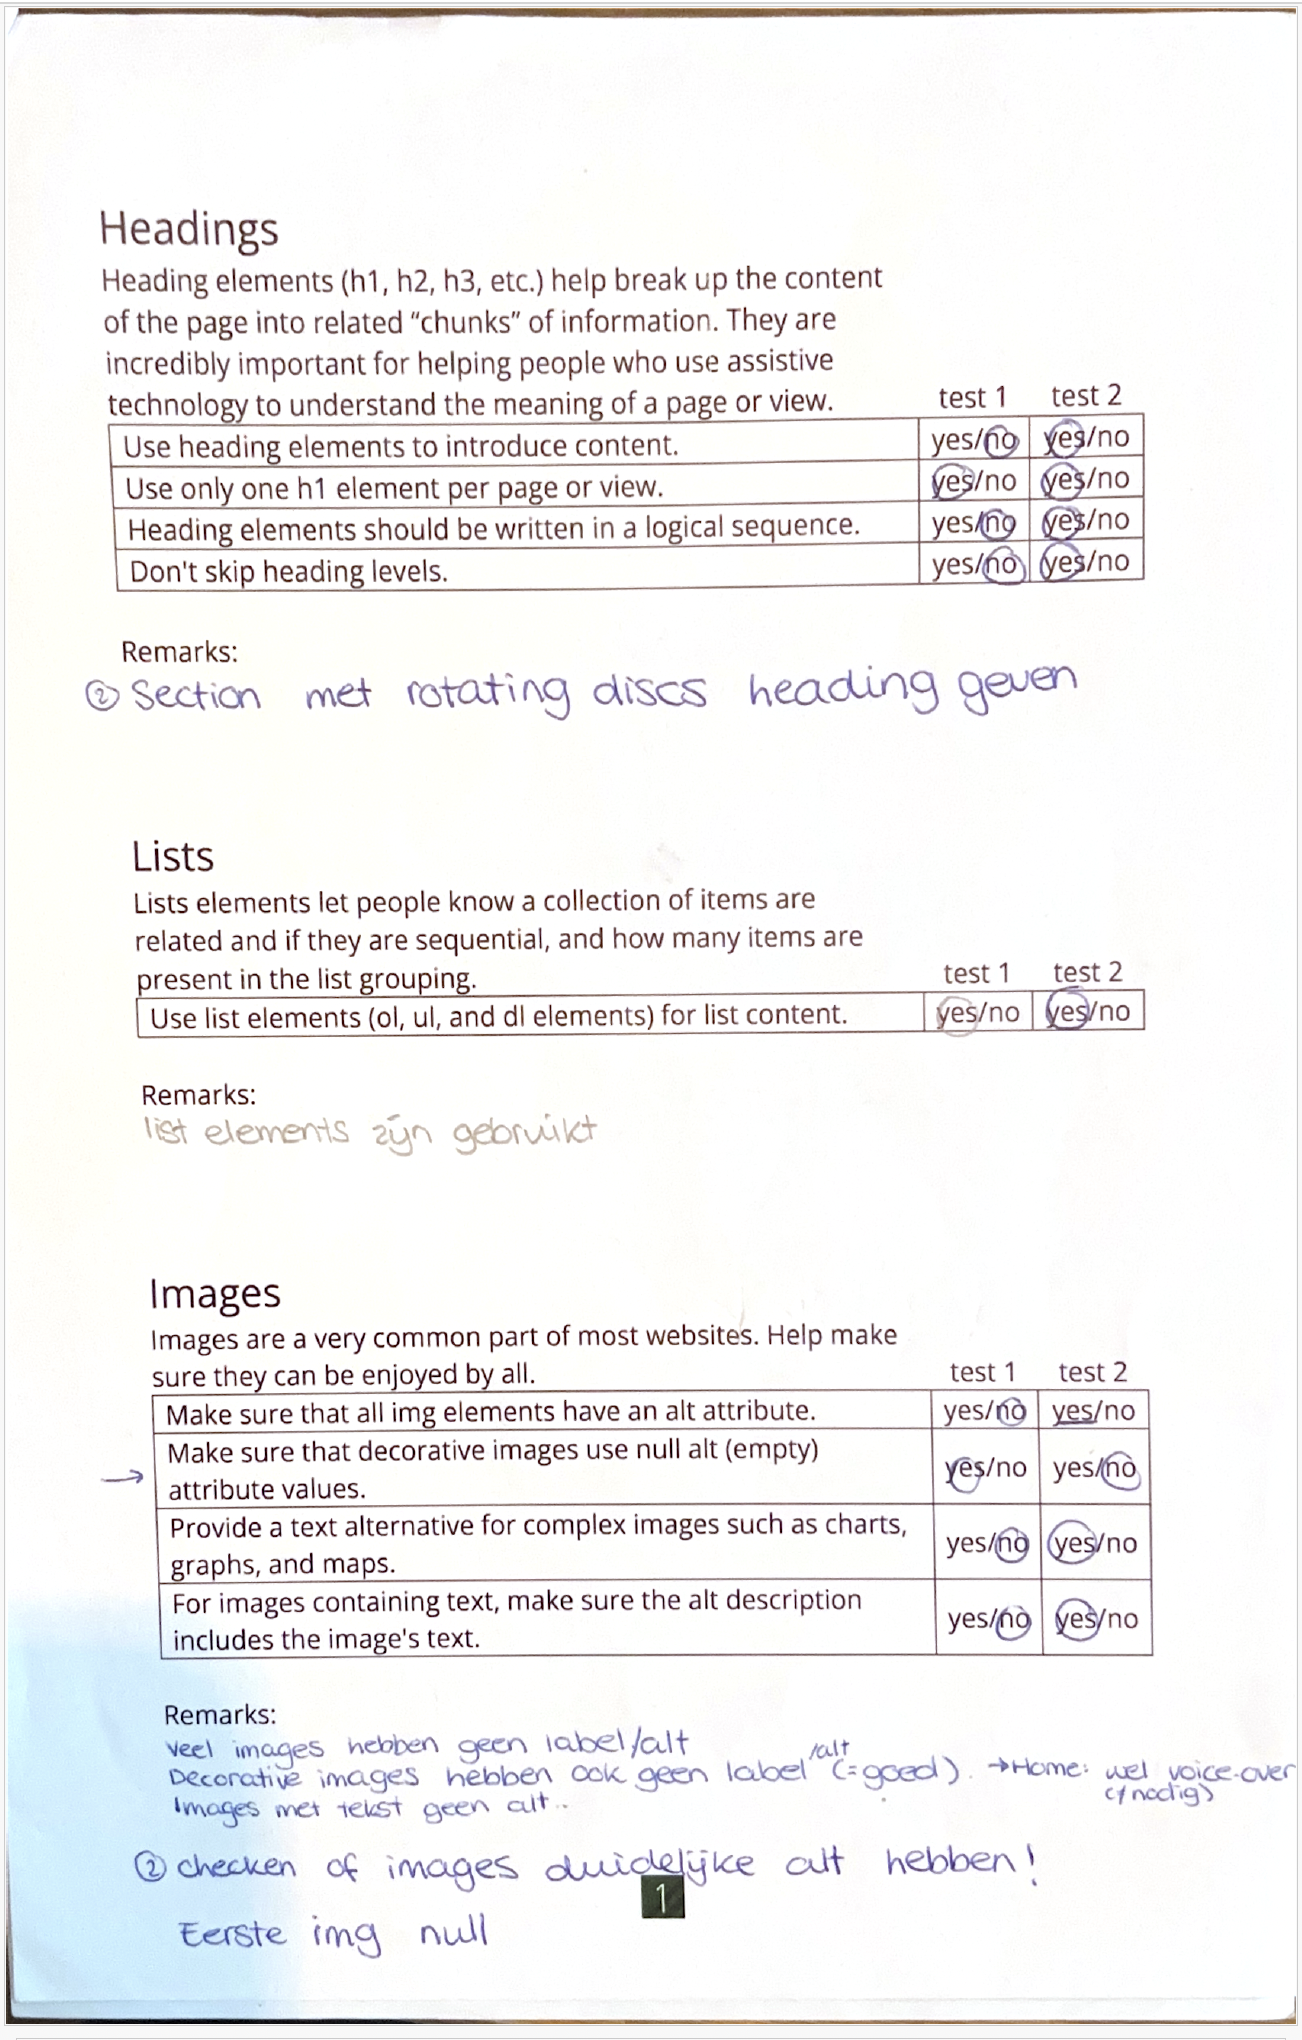 Headings
Heading elements (h1, h2, h3, etc.) help break up the content
of the page into related “chunks” of information. They are
incredibly important for helping people who use assistive
technology to understand the meaning of a page or view. test 1 test 2
Use heading elements to introduce content. yes/no yes/no
Use only one h1 element per page or view. yes/no yes/no
Heading elements should be written in a logical sequence. yes/no yes/no
Don't skip heading levels. yes/no yes/no
Remarks:
② Section met rotating discs heading geven
Lists
Lists elements let people know a collection of items are
related and if they are sequential, and how many items are
present in the list grouping. test 1 test 2
Use list elements (ol, ul, and dl elements) for list content. yes/no yes/no
Remarks:
list elements zijn gebruikt
Images
Images are a very common part of most websites. Help make
sure they can be enjoyed by all. test 1 test 2
Make sure that all img elements have an alt attribute. yes/no yes/no
Make sure that decorative images use null alt (empty)
→ attribute values. yes/no yes/no
Provide a text alternative for complex images such as charts,
graphs, and maps. yes/no yes/no
For images containing text, make sure the alt description
includes the image's text. yes/no yes/no
Remarks:
veel images hebben geen label/alt
Decorative images hebben ook geen label /alt (=goed). → Home: wel voice-over
Images met tekst geen alt.. (≠ nodig)
② checken of images duidelijke alt hebben!
1
Eerste img null